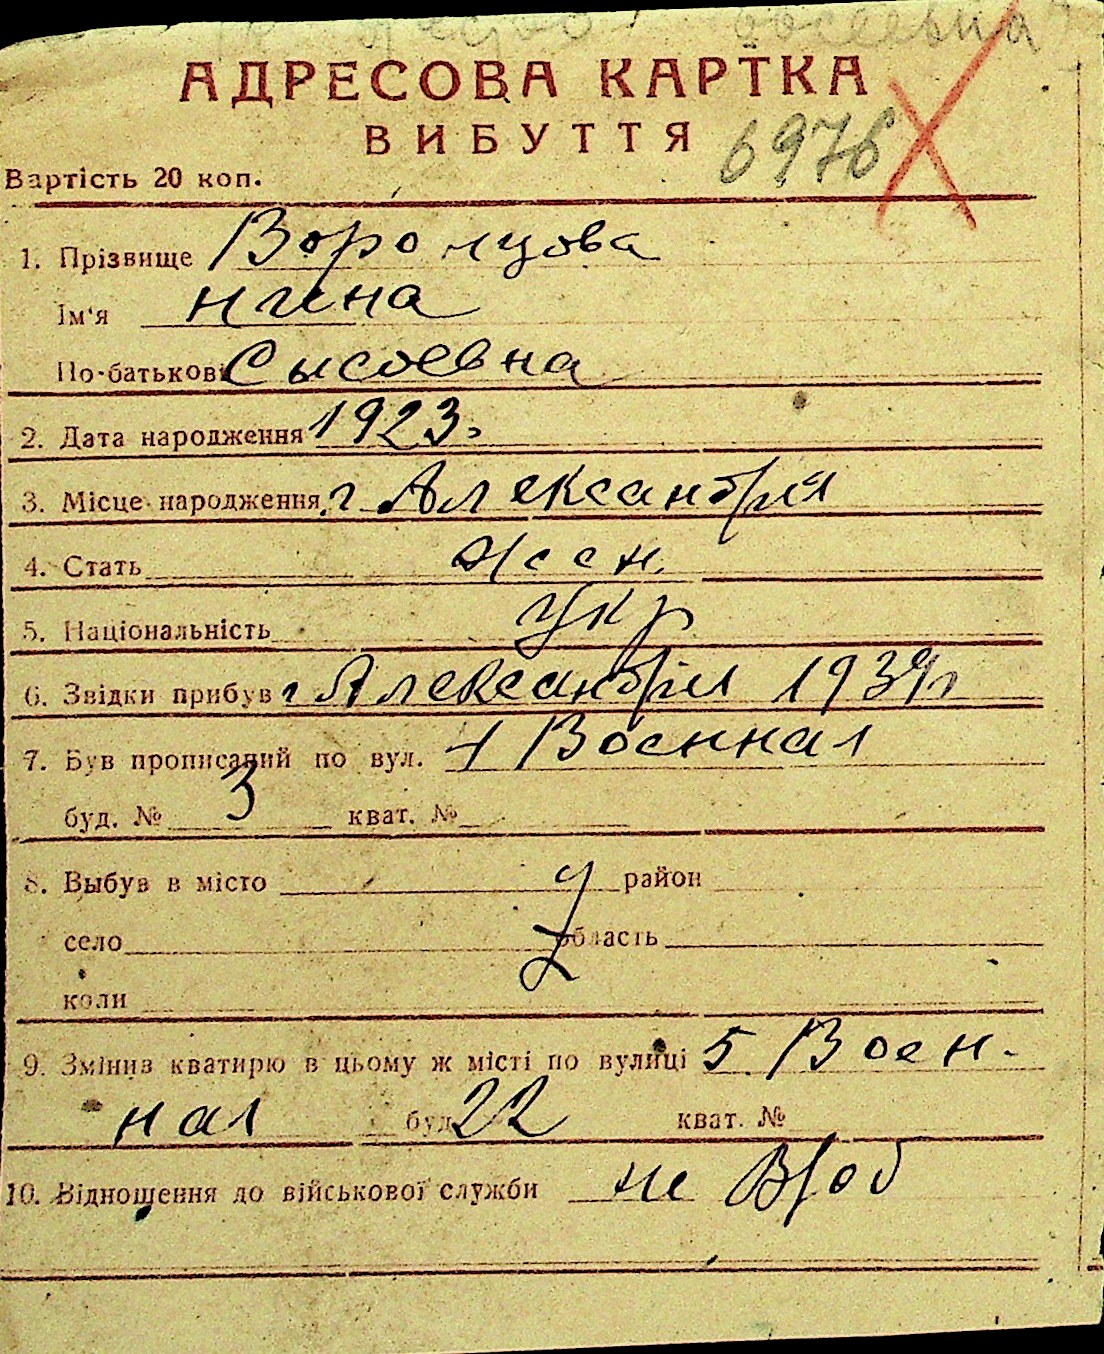 АДРЕСОВА КАРТКА
ВИБУТТЯ 6976
Вартість 20 коп.
1. Прізвище Воронцова
Ім'я Нина
По-батькові Сысоевна
2. Дата народження 1923.
3. Місце народження г Александрия
4. Стать жен.
5. Національність укр
6. Звідки прибув г Александрии 1939г
7. Був прописаний по вул. 1 Военная
буд. № 3 кват. №
8. Выбув в місто район
село область
коли
9. Змінив кватирю в цьому ж місті по вулиці 5 Воен-
ная буд 22 кват. №
10. Відношення до військової служби не В/об